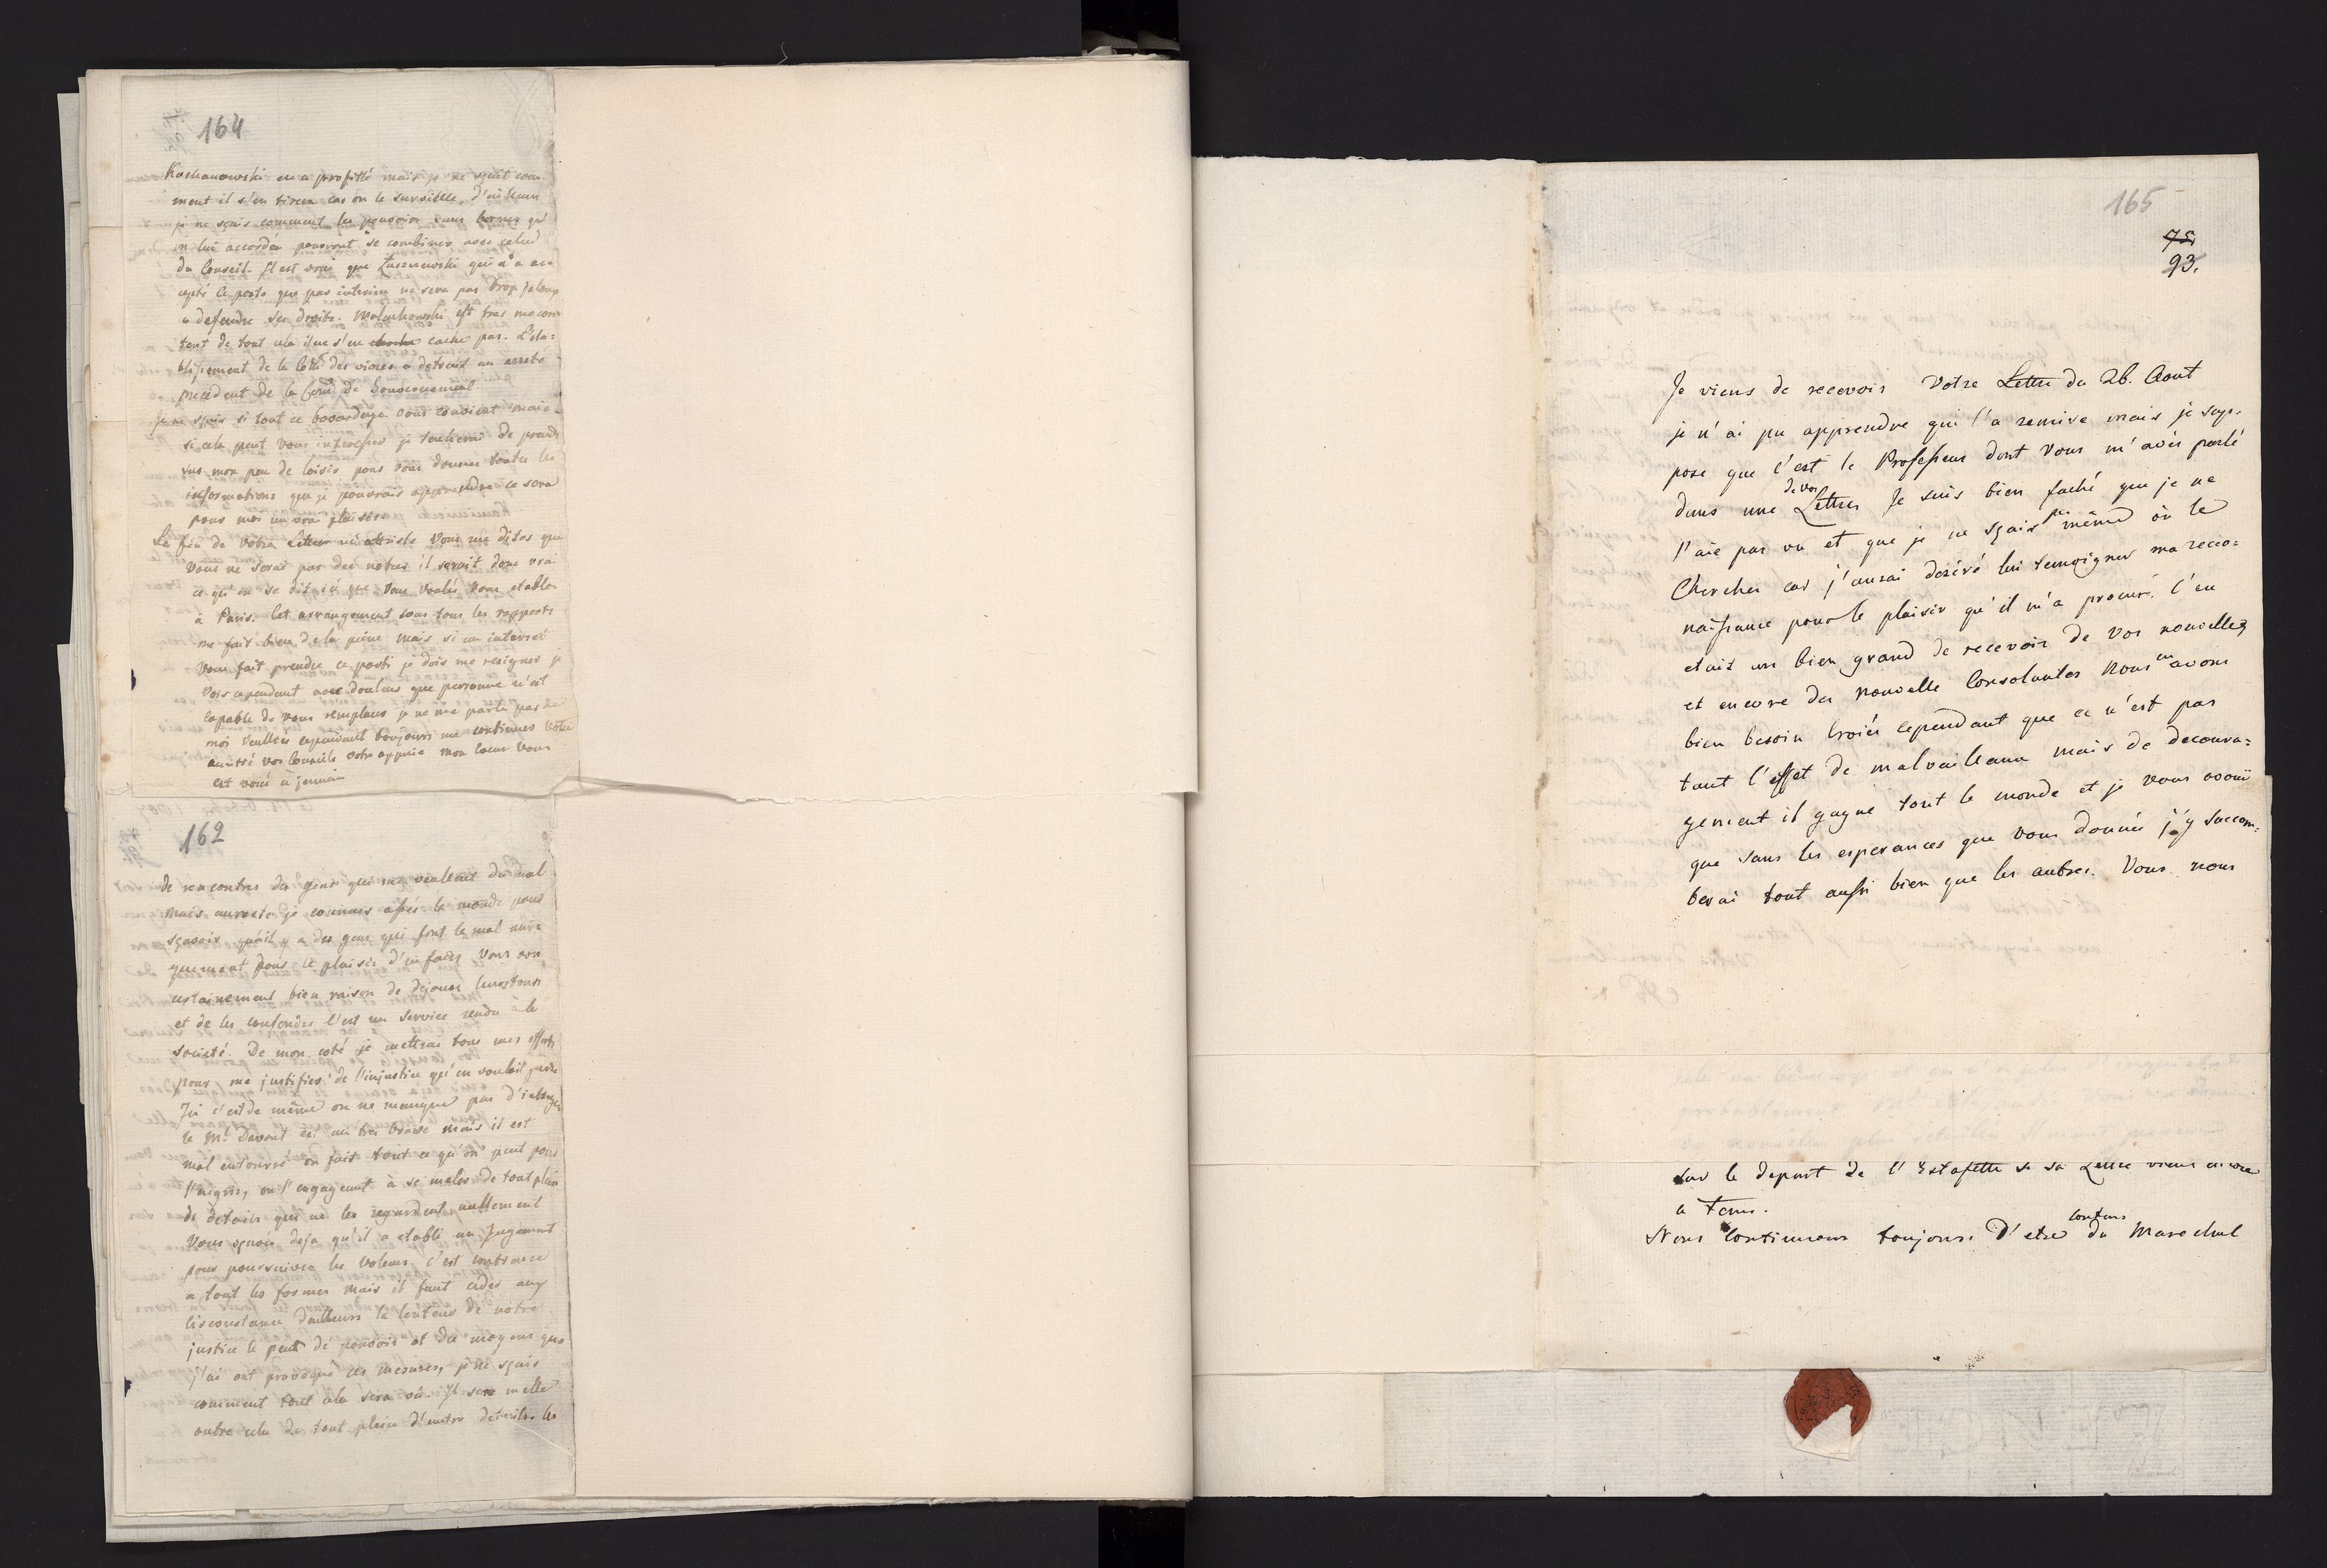 164
Kochanowski en a profitté mais je ne sçait com-
ment il s'en tirera car on le surveille, d'ailleurs
je ne sçais comment les pouvoirs sans bornes qu'
on lui accordés pouront se combiner avec celui
du Conseil. Il est vrai que Łuszczewski qui n'a ac-
cepté le poste que par interim ne sera pas trop jaloux
a defendre ses droits. Małachowski est tres mecon-
tent de tout cela il ne s'en cache pas. L'eta=
blissement de la des vivres a detruit un arreté
precedent de la de Gouvernement.
Je ne sçais si tout ce bavardage vous convient mais
si cela peut vous interesser je tacherai de prendre
sur mon peu de loisir pour vous donner toutes les
informations que je pourrais apprendre ce sera
pour moi un vrai plaisir.
La fin de votre Lettre m'attriste vous me dites que
vous ne serai pas des notres il serait donc vrai
ce qu'on se dit ici que vous voulés vous etablir
à Paris. Cet arrangement sous tous les rapports
me fait bien de la peine mais si un interest
vous fait prendre ce parti je dois me resigner je
vois cependant avec douleur que personne n'est
capable de vous remplacer je ne me parle pas de
moi veuilles cependant toujours me continuer votre
amitié vos conseils votre appuie mon cœur vous
est voué à jamais
162
de rencontrer des gens qui me veullent du mal
mais aureste je connais assés le monde pour
sçavoir qu'il y a des gens qui font le mal uni-
quement pour le plaisir d'en faire vous avés
certainement bien raison de dejouer leurs tours
et de les confondre c'est un service rendu à la
societé. De mon coté je mettrai tous mes efforts
pour me justifier de l'injustice qu'on voulait faire
Ici c'est de même on ne manque pas d'intrigues
le Ml Davout est un tres brave mais il est
mal entourré on fait tout ce qu'on peut pour
l'aigrir, en l'engageant à se meler de tout plein
de details qui ne les regardent nullement
Vous sçavés deja qu'il a etabli un Jugement
pour poursuivre les voleurs c'est contraire
a tout les formes mais il faut ceder aux
circonstance d'ailleurs la lenteur de notre
justice le peut de pouvoir et des moyens que
j'ai ont provoqué ces mesures, je ne sçais
comment tout cela sera vû. Il se melle
outre cela de tout plein d'autre details. les
165
75.
93.
Je viens de recevoir votre Lettre du 26. Aout
je n'ai pu apprendre qui l'a remise mais je sup-
pose que c'est le Professeur dont vous m'avés parlé
dans une de vos Lettres Je suis bien faché que je ne
l'aie pas vu et que je ne sçais pas même où le
chercher car j'aurai desiré lui temoigner ma reco=
naissance pour le plaisir qu'il m'a procuré. C'en
etait un bien grand de recevoir de vos nouvelles
et encore des nouvelle consolantes nous en avons
bien besoin croiés cependant que ce n'est pas
tant l'effet de malveillance mais de decoura=
gement il gagne tout le monde et je vous avouë
que sans les esperances que vous donnés j'y succom=
berai tout aussi bien que les autres. Vous nous
sur le depart de l'Estafette si sa Lettre viens encore
a tems.
Nous continuons toujours d'etre contens du Marechal